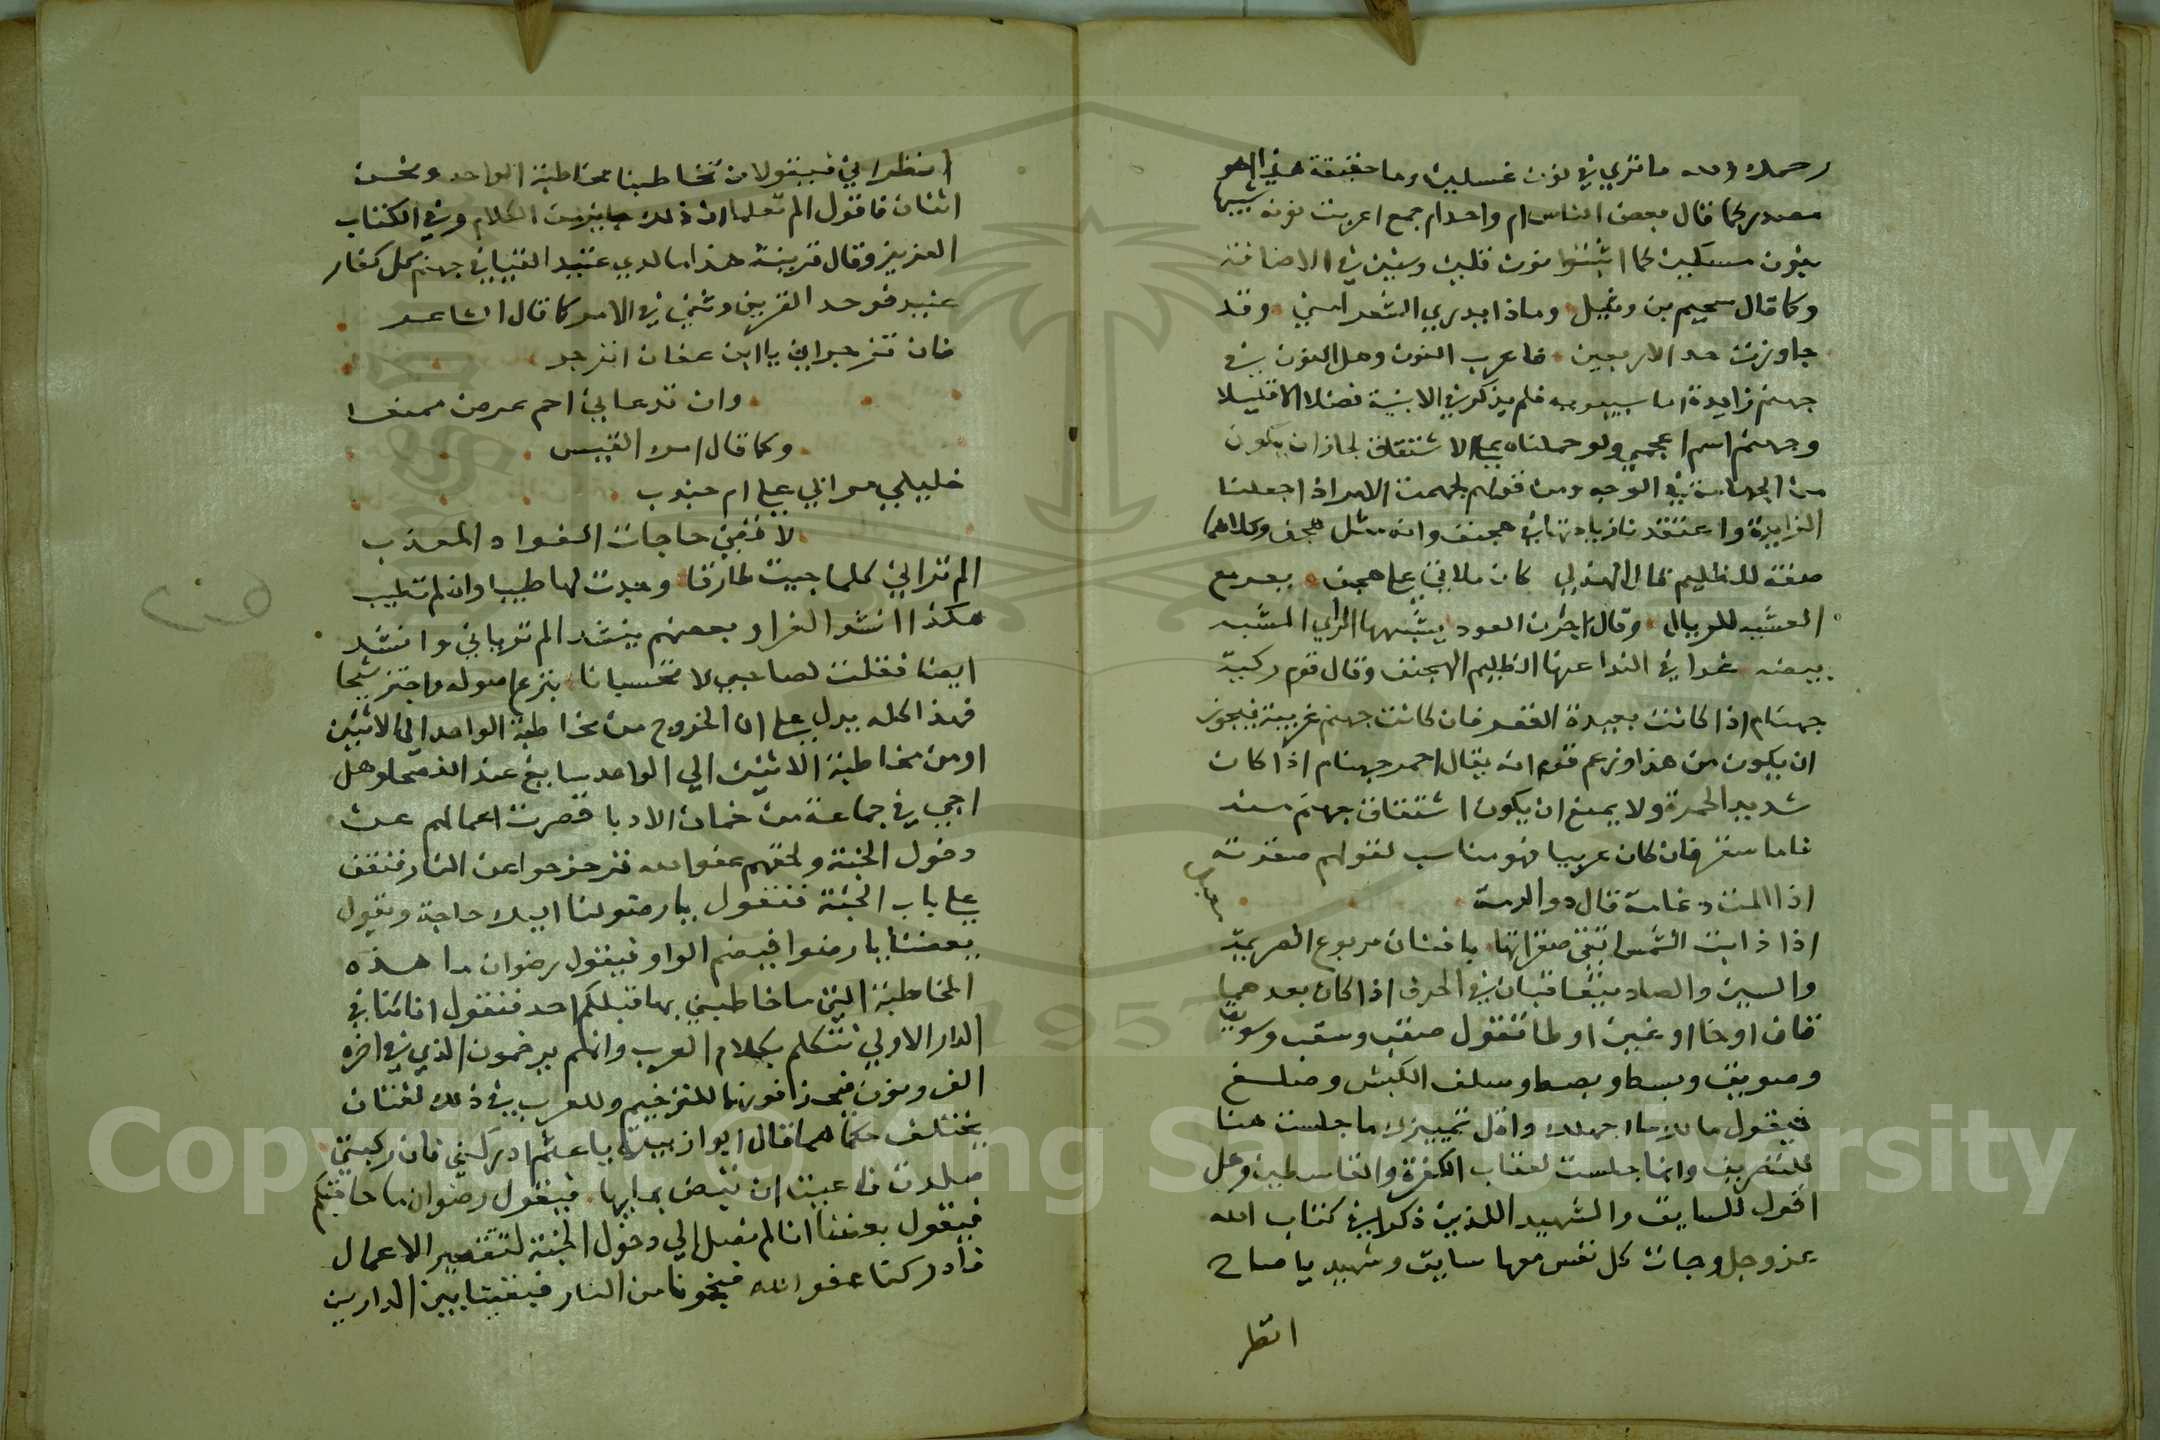 رحمك الله ما تري في نون غسلين وما حقيقة هذا اهو
مصدر كما قال بعض الناس ام واحد ام جمع اعربت نونه تشبيها
بنون مسكين كما اثبتوا نون قلين وسنين في الاضافة
وكما قال سحيم بن وثيل وماذا يدري الشعرا مني وقد
جاوزت حد الاربعين فاعرب النون وهل النون في
جهنم زايدة اما سيبويه فلم يذكر في الابنية فعنلا الا قليلا
وجهنم اسم اعجمي ولو حملناه علي الاشتقاق لجاز ان يكون
من الجهامة في الوجه ومن قولهم تجهمت الامر اذا جعلنا
الزايدة واعتقدنا زيادتها في هجنف وانه مثل هجف وكلاهما
صفة للظليم قال الهذلي كان ملاتي علي هجف يعر مع
العشيه للريال وقال جران العود يشبهها الراي المشبه
بيضه غدا في الندا عنها الظليم الهجنف وقال قوم ركية
جهنام اذا كانت بعيدة القعر فان كانت جهنم عربية فيجوز
ان يكون من هذا وزعم قوم انه يقال احمر جهنام اذا كان
شديد الحمرة ولا يمنع ان يكون اشتقاق جهنم منه
فاما سقر فان كان عربيا فهو مناسب لقولهم صقرته
اذا المت دماغه قال ذو الرمة
اذا ذابت الشمس اتقي صقراتها بافنان مربوع الصريمة
والسين والصاد يتعاقبان في الحرف اذا كان بعدهما
قاف او خا او غين او طا فتقول صقب وسقب وسويق
وصويق وبسط وبصط وسلغ الكبش وصلغ
فيقول مالك ما اجهلك واقل تمييزك ما جلست هنا
للتصريف وانما جلست لعقاب الكفرة والقاسطين وهل
اقول للسايق والشهيد اللذين ذكرا في كتاب الله
عز وجل وجات كل نفس معها سايق وشهيد يا صاح
انظر
انظراني فيقولان تخاطبنا مخاطبة الواحد ونحن
اثنان فاقول الم تعلما ان ذلك جايز من الكلام وفي الكتاب
العزيز وقال قرينه هذا ما لدي عتيد القيا في جهنم كل كفار
عنيد فوحد القرين وثني في الامر كما قال الشاعر
فان تزجراني يا ابن عفان انزجر
وان تدعاني احم عرضا ممنعا
وكما قال امرء القيس
خليلي مرا بي علي ام جندب
لا تقضي حاجات الفواد المعذب
الم تر اني كلما جيت طارقا وجدت لها طيبا وان لم تطيب
هكذا انشد الفرا وبعضهم ينشد الم ترياني وانشد
ايضا فقلت لصاحبي لا تحسبانا بنزع اصوله واجتز شيحا
فهذا كله يدل علي ان الخروج من مخاطبة الواحد الي الاثنين
او من مخاطبة الاثنين الي الواحد سايغ عند الفصحا وهل
اجي في جماعة من خمان الادبا قصرت اعمالهم عن
دخول الجنة ولحقهم عفو الله فزحزحوا عن النار فنقف
علي باب الجنة فنقول يا رضو لنا اليك حاجة ويقول
بعضنا يا رضو افيضم الواو فيقول رضوان ما هذه
المخاطبة التي ما خاطبني بها قبلكم احد فنقول انا كنا في
الدار الاولي نتكلم بكلام العرب وانهم يرخمون الذي في اخره
الف ونون فيحذفونهما للترخيم وللعرب في ذلك لغتان
يختلف حكماهما قال ابو زبيد يا عثم ادركني فان ركيتي
صلدت فاعيت ان تبض بمايها فيقول رضوان ما حاجتكم
فيقول بعضنا انا لم نصل الي دخول الجنة لتقصير الاعمال
فادركنا عفو الله فنجونا من النار فبقينا بين الدارين
1957
Copyright © King Saud University